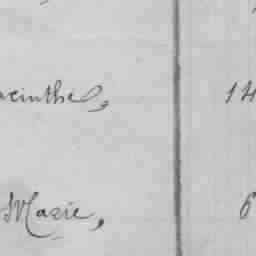 acinthe, 14
Marie, 6